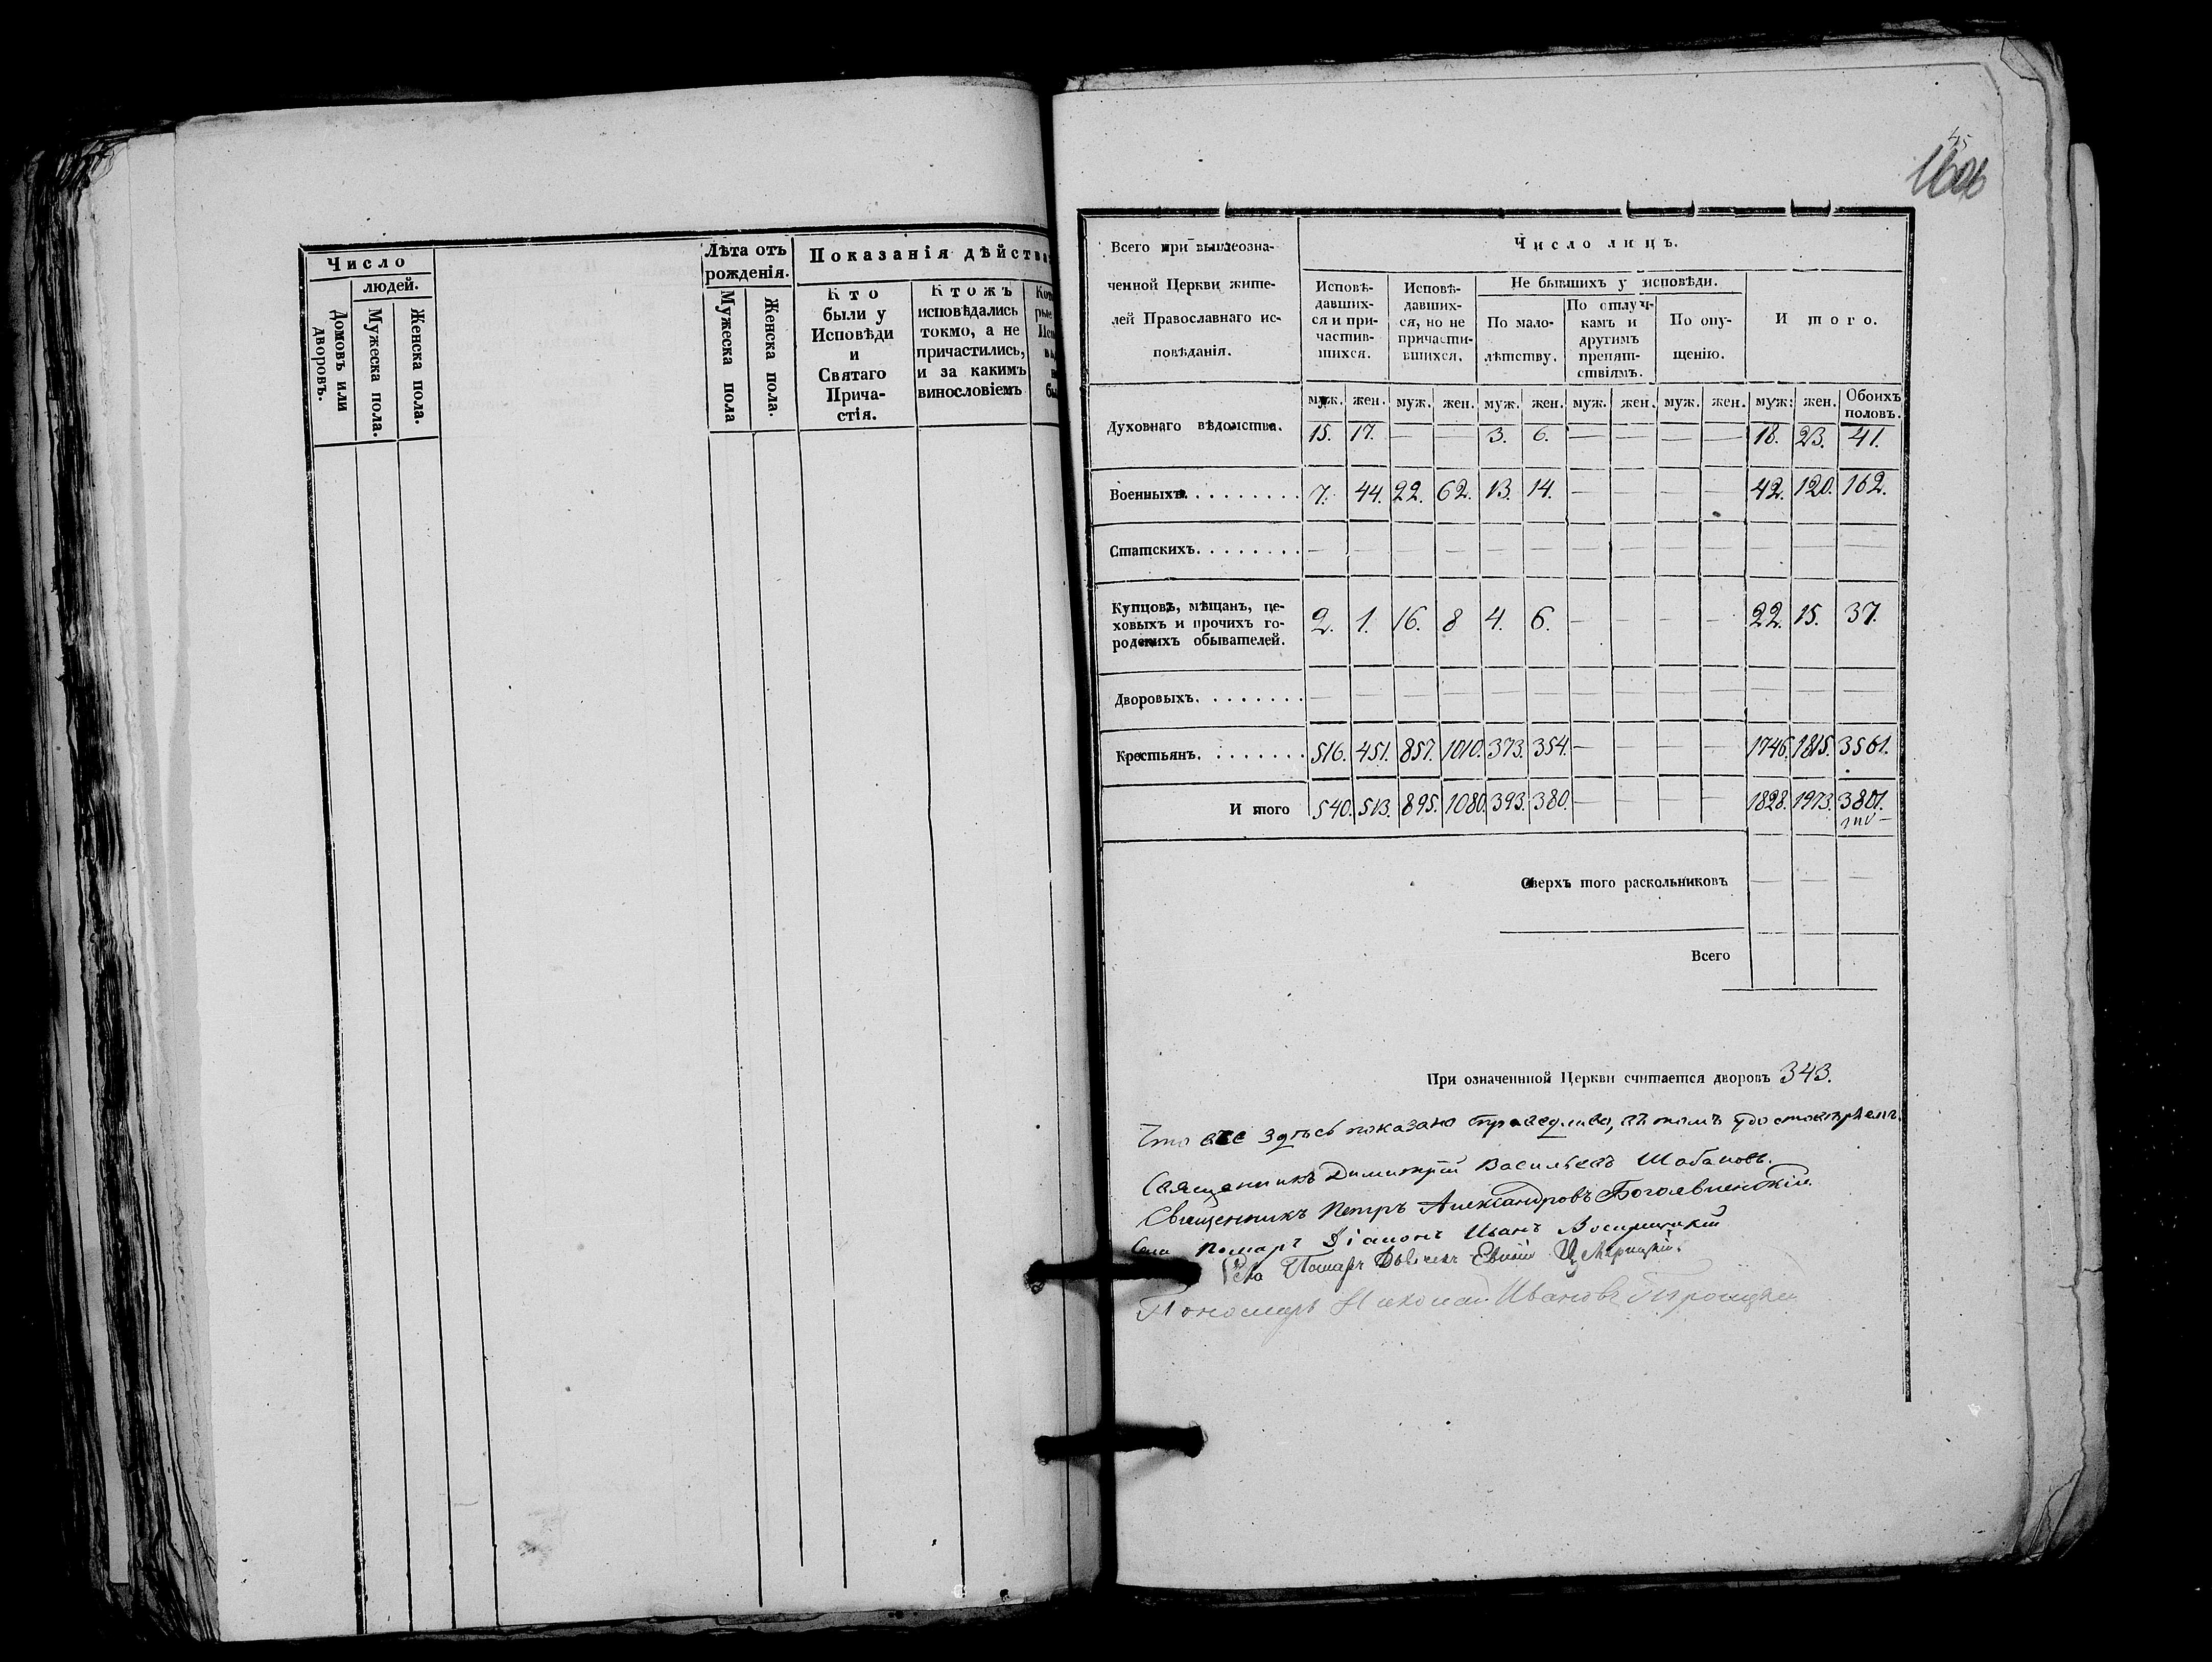 Число
людей.
Домовъ или дворовъ.
Мужеска пола.
Женска пола.
Лѣта отъ
рожденія.
Мужеска пола
Женска пола.
Показанія дѣйства
Кто
были у
Исповѣди
и
Святаго
Прича-
стія.
Ктожъ
исповѣдались
токмо, а не
причастились,
и за какимъ
винословіемъ
45
Всего при вышеозна-
ченной Церкви жите-
лей Православнаго ис-
повѣданія.
Число лицъ.
Исповѣ-
давших-
ся и при-
частив-
шихся.
Исповѣ-
давших-
ся, но не
причасти-
вшихся.
Не бывшихъ у исповѣди.
По мало-
лѣтству.
По отлуч-
камъ и
другимъ
препят-
ствіямъ.
По опу-
щенію.
И того.
муж. жен. муж. жен. муж. жен. муж. жен. муж. жен. муж: жен. Обоихъ половъ.
Духовнаго вѣдомства. 15. 17. — — 3. 6. — — — — 18. 23. 41.
Военныхъ. . . . . . . . . 7. 44. 22. 62. 13. 14. — — — — 42. 120. 162.
Статскихъ. . . . . . . . — — — — — — — — — — — — —
Купцовъ, мѣщанъ, це-
ховыхъ и прочихъ го-
родскихъ обывателей. 2. 1. 16. 8 4. 6. — — — — 22. 15. 37.
Дворовыхъ. . . . . . . . — — — — — — — — — — — — —
Крестьянъ. . . . . . . . 516. 451. 857. 1010. 373. 354. — — — — 1746. 1815. 3561.
И того 540. 513. 895. 1080. 393. 380. — — — — 1828. 1973. 3801.
Сверхъ того раскольниковъ — — —
Всего
При означеннной Церкви считается дворовъ 343.
Что все здѣсь показано справедливо, въ томъ удостовѣряемъ.
Священникъ Димитрій Васильевъ Шабановъ.
Священникъ Петръ Александровъ Богоявленскій
Діаконъ Иванъ
Пономарь Николай Ивановъ